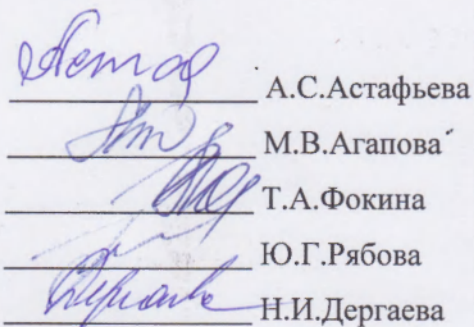 А.С.Астафьева
М.В.Агапова
Т.А.Фокина
Ю.Г.Рябова
Н.И.Дергаева